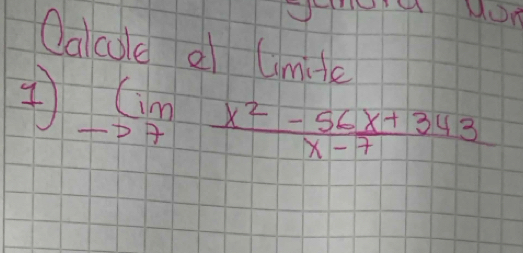 Calcule el limite
1) lim x² - 56x + 343
-> 7 x - 7